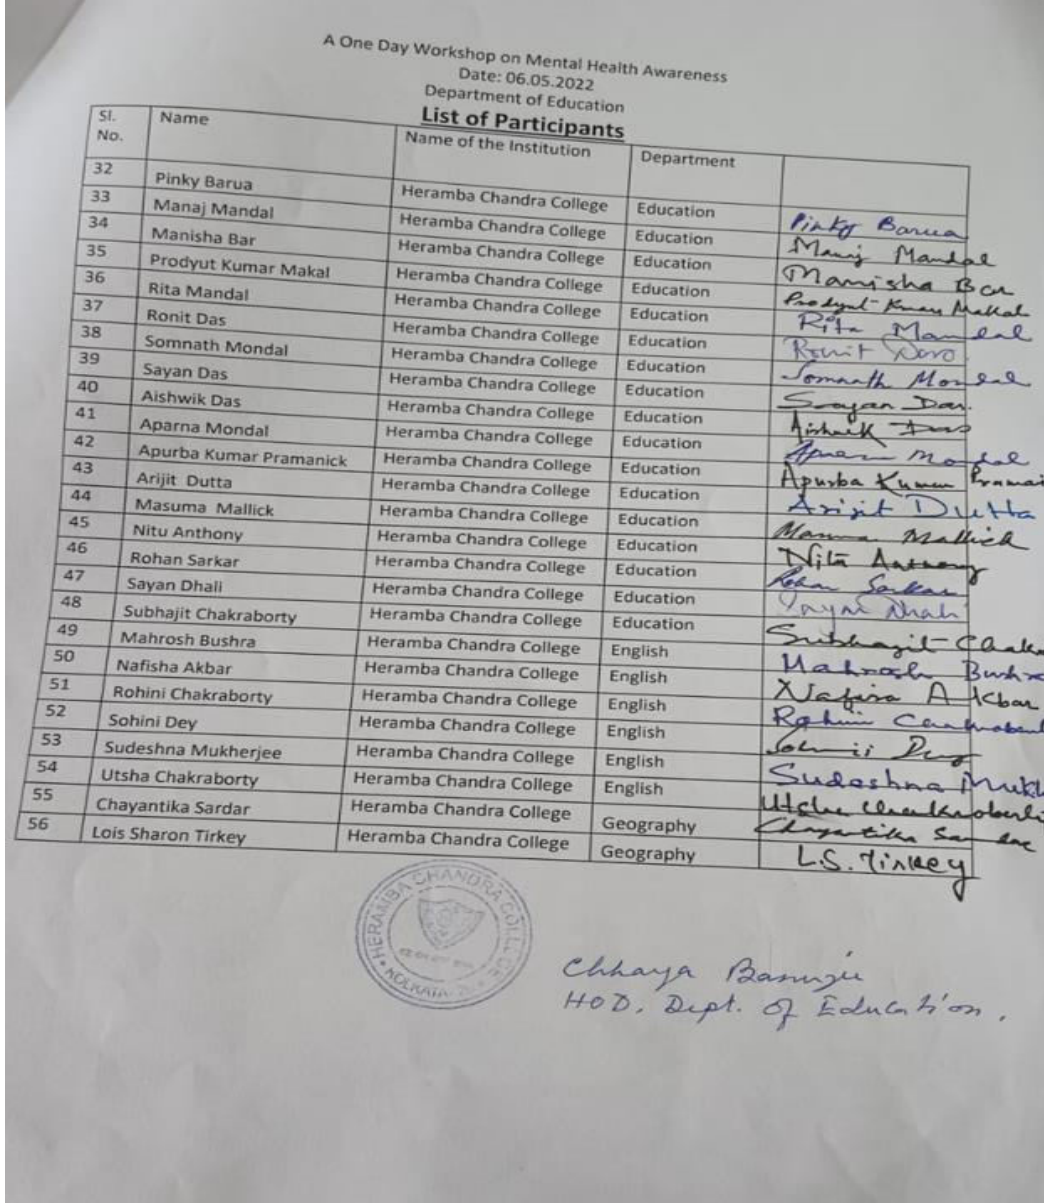 A One Day Workshop on Mental Health Awareness
Date: 06.05.2022
Department of Education
List of Participants
Sl. No. Name Name of the Institution Department
32 Pinky Barua Heramba Chandra College Education Pinky Barua
33 Manaj Mandal Heramba Chandra College Education Manaj Mandal
34 Manisha Bar Heramba Chandra College Education Manisha Bar
35 Prodyut Kumar Makal Heramba Chandra College Education Prodyut Kumar Makal
36 Rita Mandal Heramba Chandra College Education Rita Mandal
37 Ronit Das Heramba Chandra College Education Ronit
38 Somnath Mondal Heramba Chandra College Education Somnath Mondal
39 Sayan Das Heramba Chandra College Education Sayan Das.
40 Aishwik Das Heramba Chandra College Education Aishwik Das
41 Aparna Mondal Heramba Chandra College Education Aparna Mondal
42 Apurba Kumar Pramanick Heramba Chandra College Education Apurba Kumar
43 Arijit Dutta Heramba Chandra College Education Arijit Dutta
44 Masuma Mallick Heramba Chandra College Education Masuma Mallick
45 Nitu Anthony Heramba Chandra College Education Anthony
46 Rohan Sarkar Heramba Chandra College Education Rohan Sarkar
47 Sayan Dhali Heramba Chandra College Education Sayan Dhali
48 Subhajit Chakraborty Heramba Chandra College Education Subhajit
49 Mahrosh Bushra Heramba Chandra College English Mahrosh Bushra
50 Nafisha Akbar Heramba Chandra College English Nafisa Akbar
51 Rohini Chakraborty Heramba Chandra College English Rohini
52 Sohini Dey Heramba Chandra College English Sohini Dey
53 Sudeshna Mukherjee Heramba Chandra College English Sudeshna
54 Utsha Chakraborty Heramba Chandra College English
55 Chayantika Sardar Heramba Chandra College Geography Chayantika Sardar
56 Lois Sharon Tirkey Heramba Chandra College Geography L.S. Tirkey
HERAMBA CHANDRA COLLEGE
KOLKATA
Chhaya Banerjee
HOD, Dept. of Education.